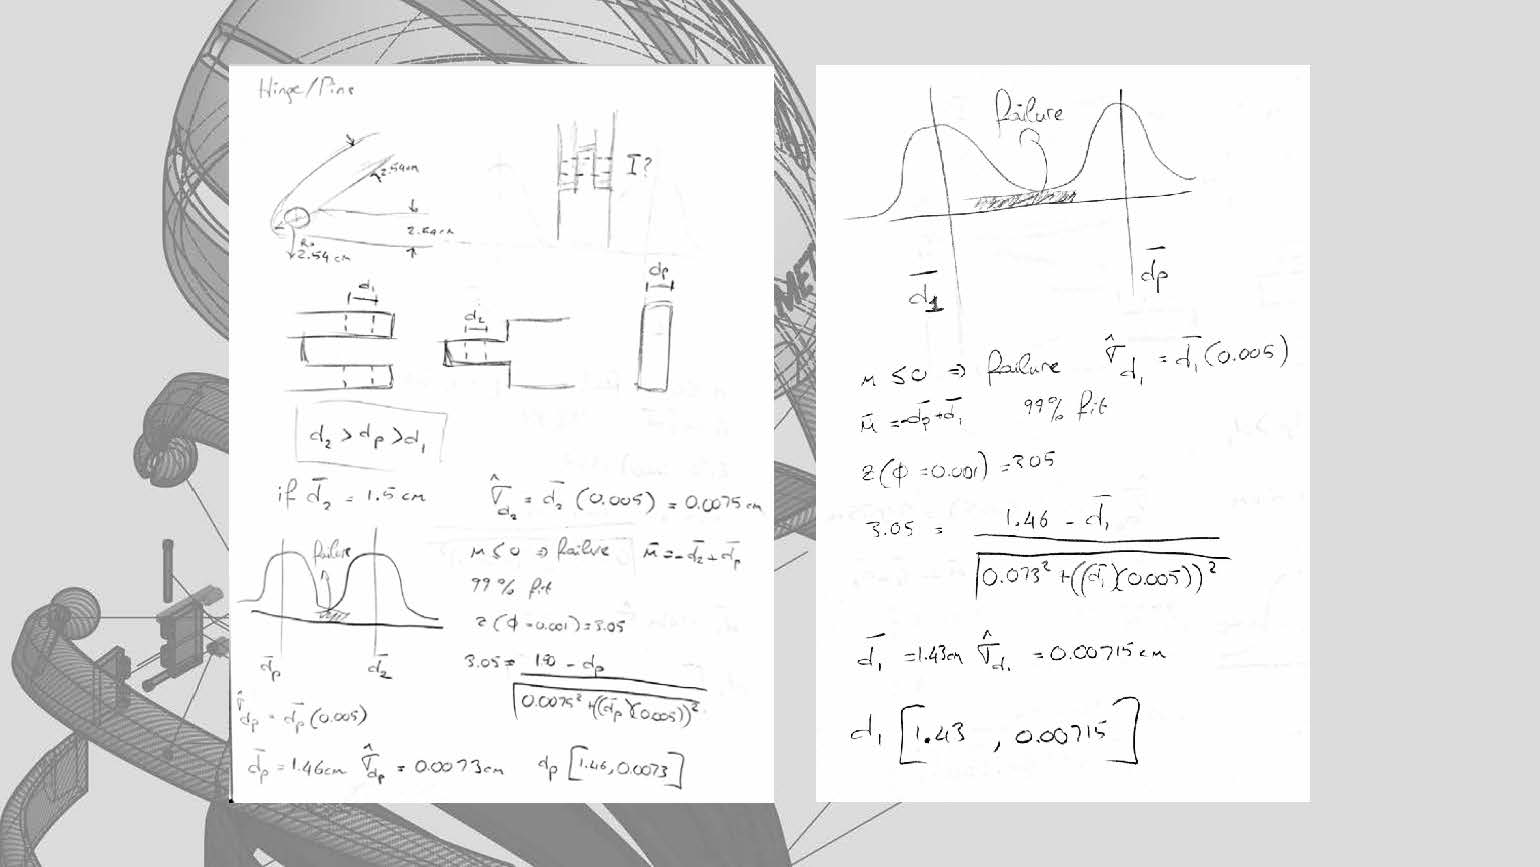 Hinge/Pins
2.54cm
I?
2.54cm
R=
2.54 cm
d₁
d₂
dp
d₂ > dp > d₁
if d̄₂ = 1.5 cm
σ̂d₂ = d̄₂ (0.005) = 0.0075 cm
failure
d̄p
d̄₂
μ ≤ 0 ⇒ failure
μ̄ = -d̄₂ + d̄p
99% fit
z(ϕ = 0.001) = 3.05
3.05 = (1.50 - dp) / √(0.0075² + ((d̄p)(0.005))²
σ̂dp = d̄p (0.005)
d̄p = 1.46cm σ̂dp = 0.0073cm
dp [1.46, 0.0073]
failure
d̄1
d̄p
μ ≤ 0 ⇒ failure
σ̂d₁ = d̄₁ (0.005)
μ̄ = -d̄p + d̄₁
99% fit
z(ϕ = 0.001) = 3.05
3.05 = (1.46 - d̄₁) / √(0.073² + ((d̄₁)(0.005))²
d̄₁ = 1.43cm σ̂d₁ = 0.00715 cm
d₁ [1.43, 0.00715]
MET